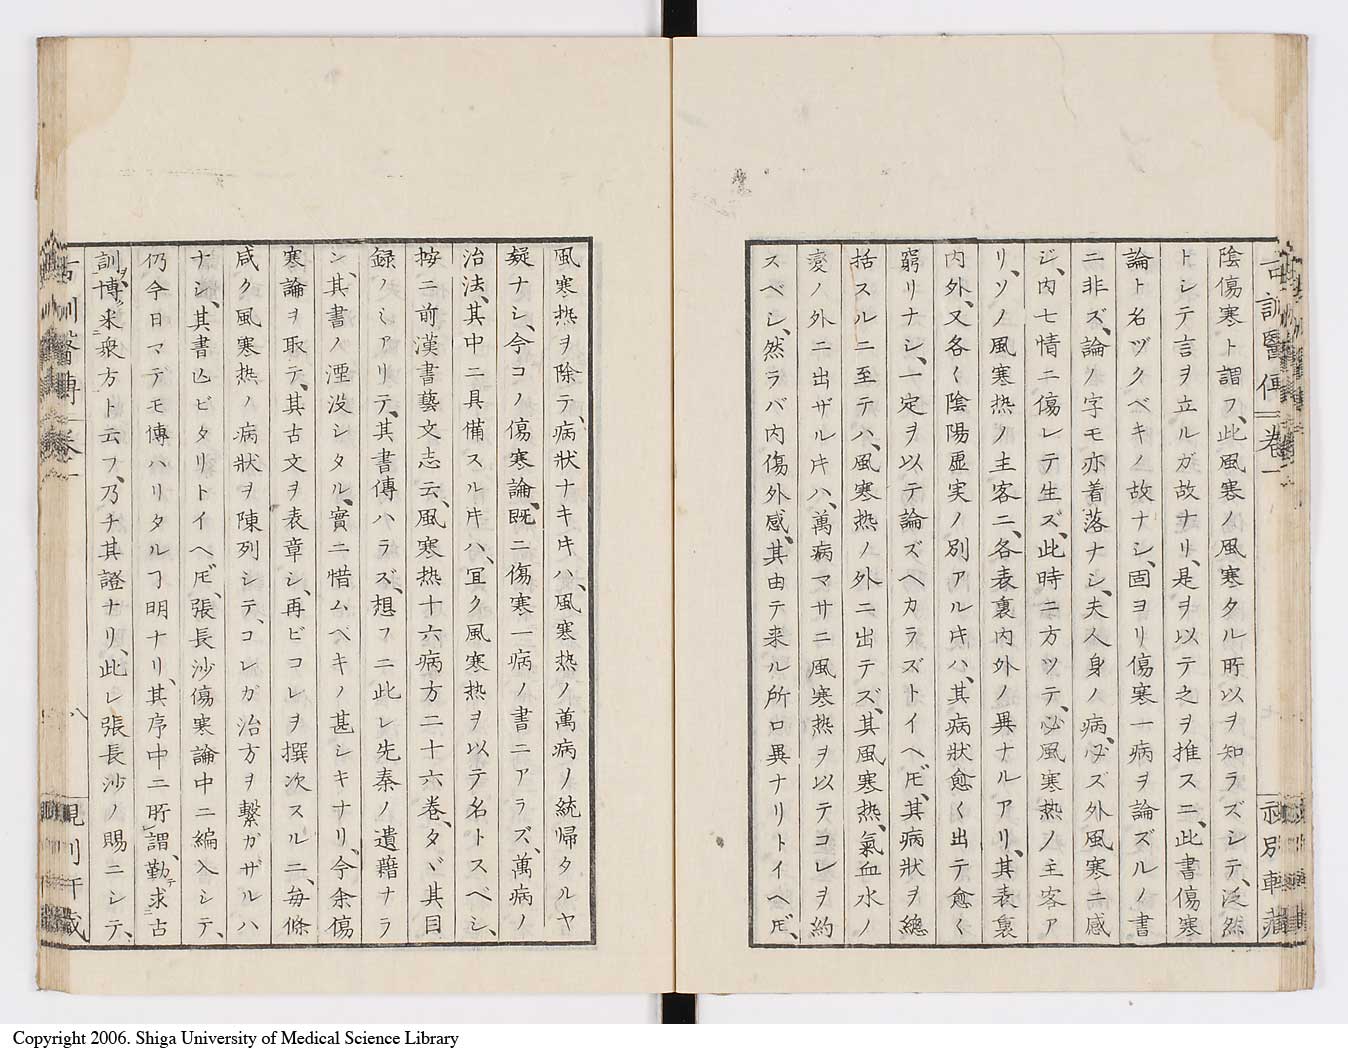 古訓醫傳 卷一
陰傷寒ト謂フ、此風寒ノ風寒タル所以ヲ知ラズシテ、泛然
トシテ言ヲ立ルガ故ナリ、是ヲ以テ之ヲ推スニ、此書傷寒
論ト名ヅクベキノ故ナシ、固ヨリ傷寒一病ヲ論ズルノ書
ニ非ズ、論ノ字モ亦着落ナシ、夫人身ノ病、必ズ外風寒ニ感
ジ、内七情ニ傷レテ生ズ、此時ニ方ツテ、必風寒熱ノ主客ア
リ、ソノ風寒熱ノ主客ニ、各表裏内外ノ異ナルアリ、其表裏
内外、又各〱陰陽虚実ノ別アル𪜈ハ、其病狀愈〱出テ愈〱
窮リナシ、一定ヲ以テ論ズヘカラズトイヘ𪜈、其病狀ヲ總
括スルニ至テハ、風寒熱ノ外ニ出テズ、其風寒熱、氣血水ノ
変ノ外ニ出ザル𪜈ハ、萬病マサニ風寒熱ヲ以テコレヲ約
スベシ、然ラバ内傷外感、其由テ来ル所ロ異ナリトイヘ𪜈、
風寒熱ヲ除テ、病狀ナキ𪜈ハ、風寒熱ノ萬病ノ統帰タルヤ
疑ナシ、今コノ傷寒論、既ニ傷寒一病ノ書ニアラズ、萬病ノ
治法、其中ニ具備スル𪜈ハ、冝ク風寒熱ヲ以テ名トスベシ、
按ニ前漢書藝文志云、風寒熱十六病方二十六卷、タヾ其目
録ノミアリテ、其書傳ハラズ、想フニ此レ先秦ノ遺籍ナラ
ン、其書ノ湮没シタル、實ニ惜ムベキノ甚シキナリ、今余傷
寒論ヲ取テ、其古文ヲ表章シ、再ビコレヲ撰次スルニ、毎條
咸ク風寒熱ノ病狀ヲ陳列シテ、コレガ治方ヲ繋ガザルハ
ナシ、其書亾ビタリトイヘ𪜈、張長沙傷寒論中ニ編入シテ、
仍今日マデモ傳ハリタルヿ明ナリ、其序中ニ所謂、勤求古
訓、博采衆方ト云フ、乃チ其證ナリ、此レ張長沙ノ賜ニシテ、
古訓醫傳 卷一 八